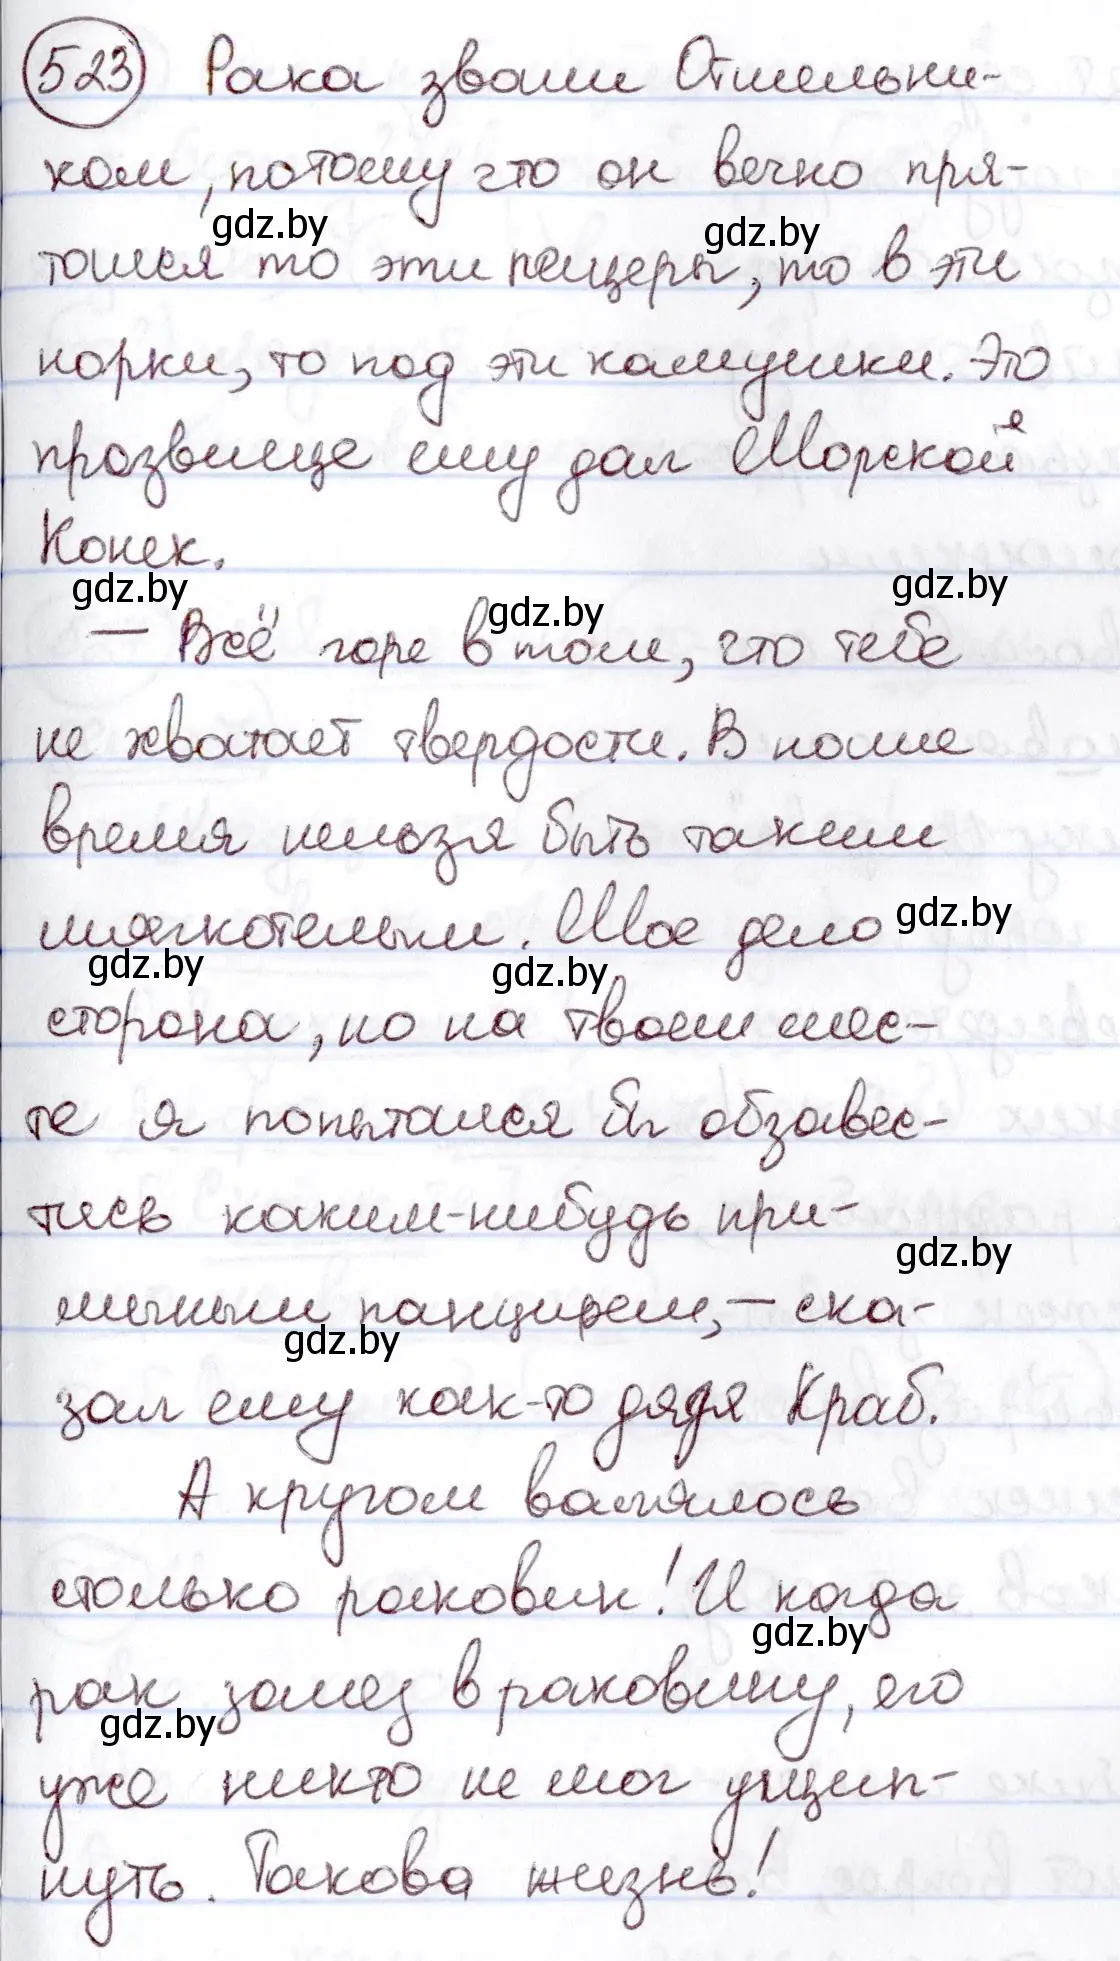 523 Рака звали Отшельни-
ком, потому что он вечно пря-
gdz.by gdz.by
тался то эти пещеры, то в эти
норки, то под эти камушки. Это
прозвище ему дал Морской
Конек.
gdz.by gdz.by gdz.by
— Всё горе в том, что тебе
не хватает твердости. В наше
время нельзя быть таким
мягкотелым. Мое дело gdz.by
gdz.by gdz.by
сторона, но на твоем мес-
те я попытался бы обзавес-
тись каким-нибудь при-
gdz.by
личным панцирем, — ска-
gdz.by
зал ему как-то дядя Краб.
А кругом валялось
столько раковин! И когда
gdz.by
рак залез в раковину, его
gdz.by
уже никто не мог ущип-
нуть. Такова жизнь!